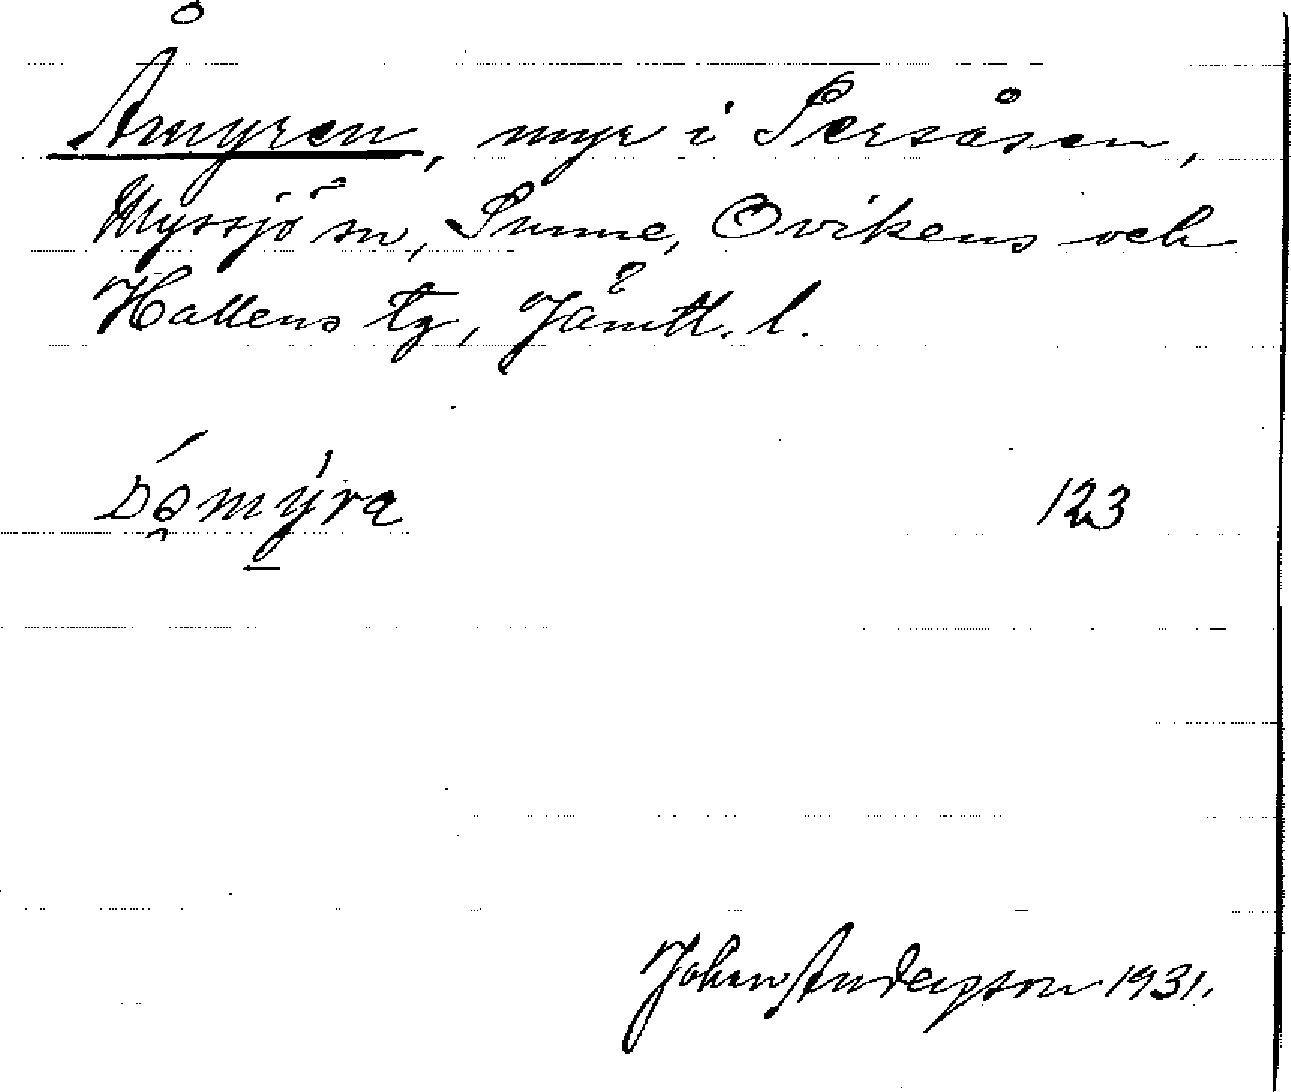 Åmyren, myr i Persåsen,
Myssjö sn, Sunne, Ovikens och
Hallens tg, Jämtl. l.
123
Johan Anderson 1931.